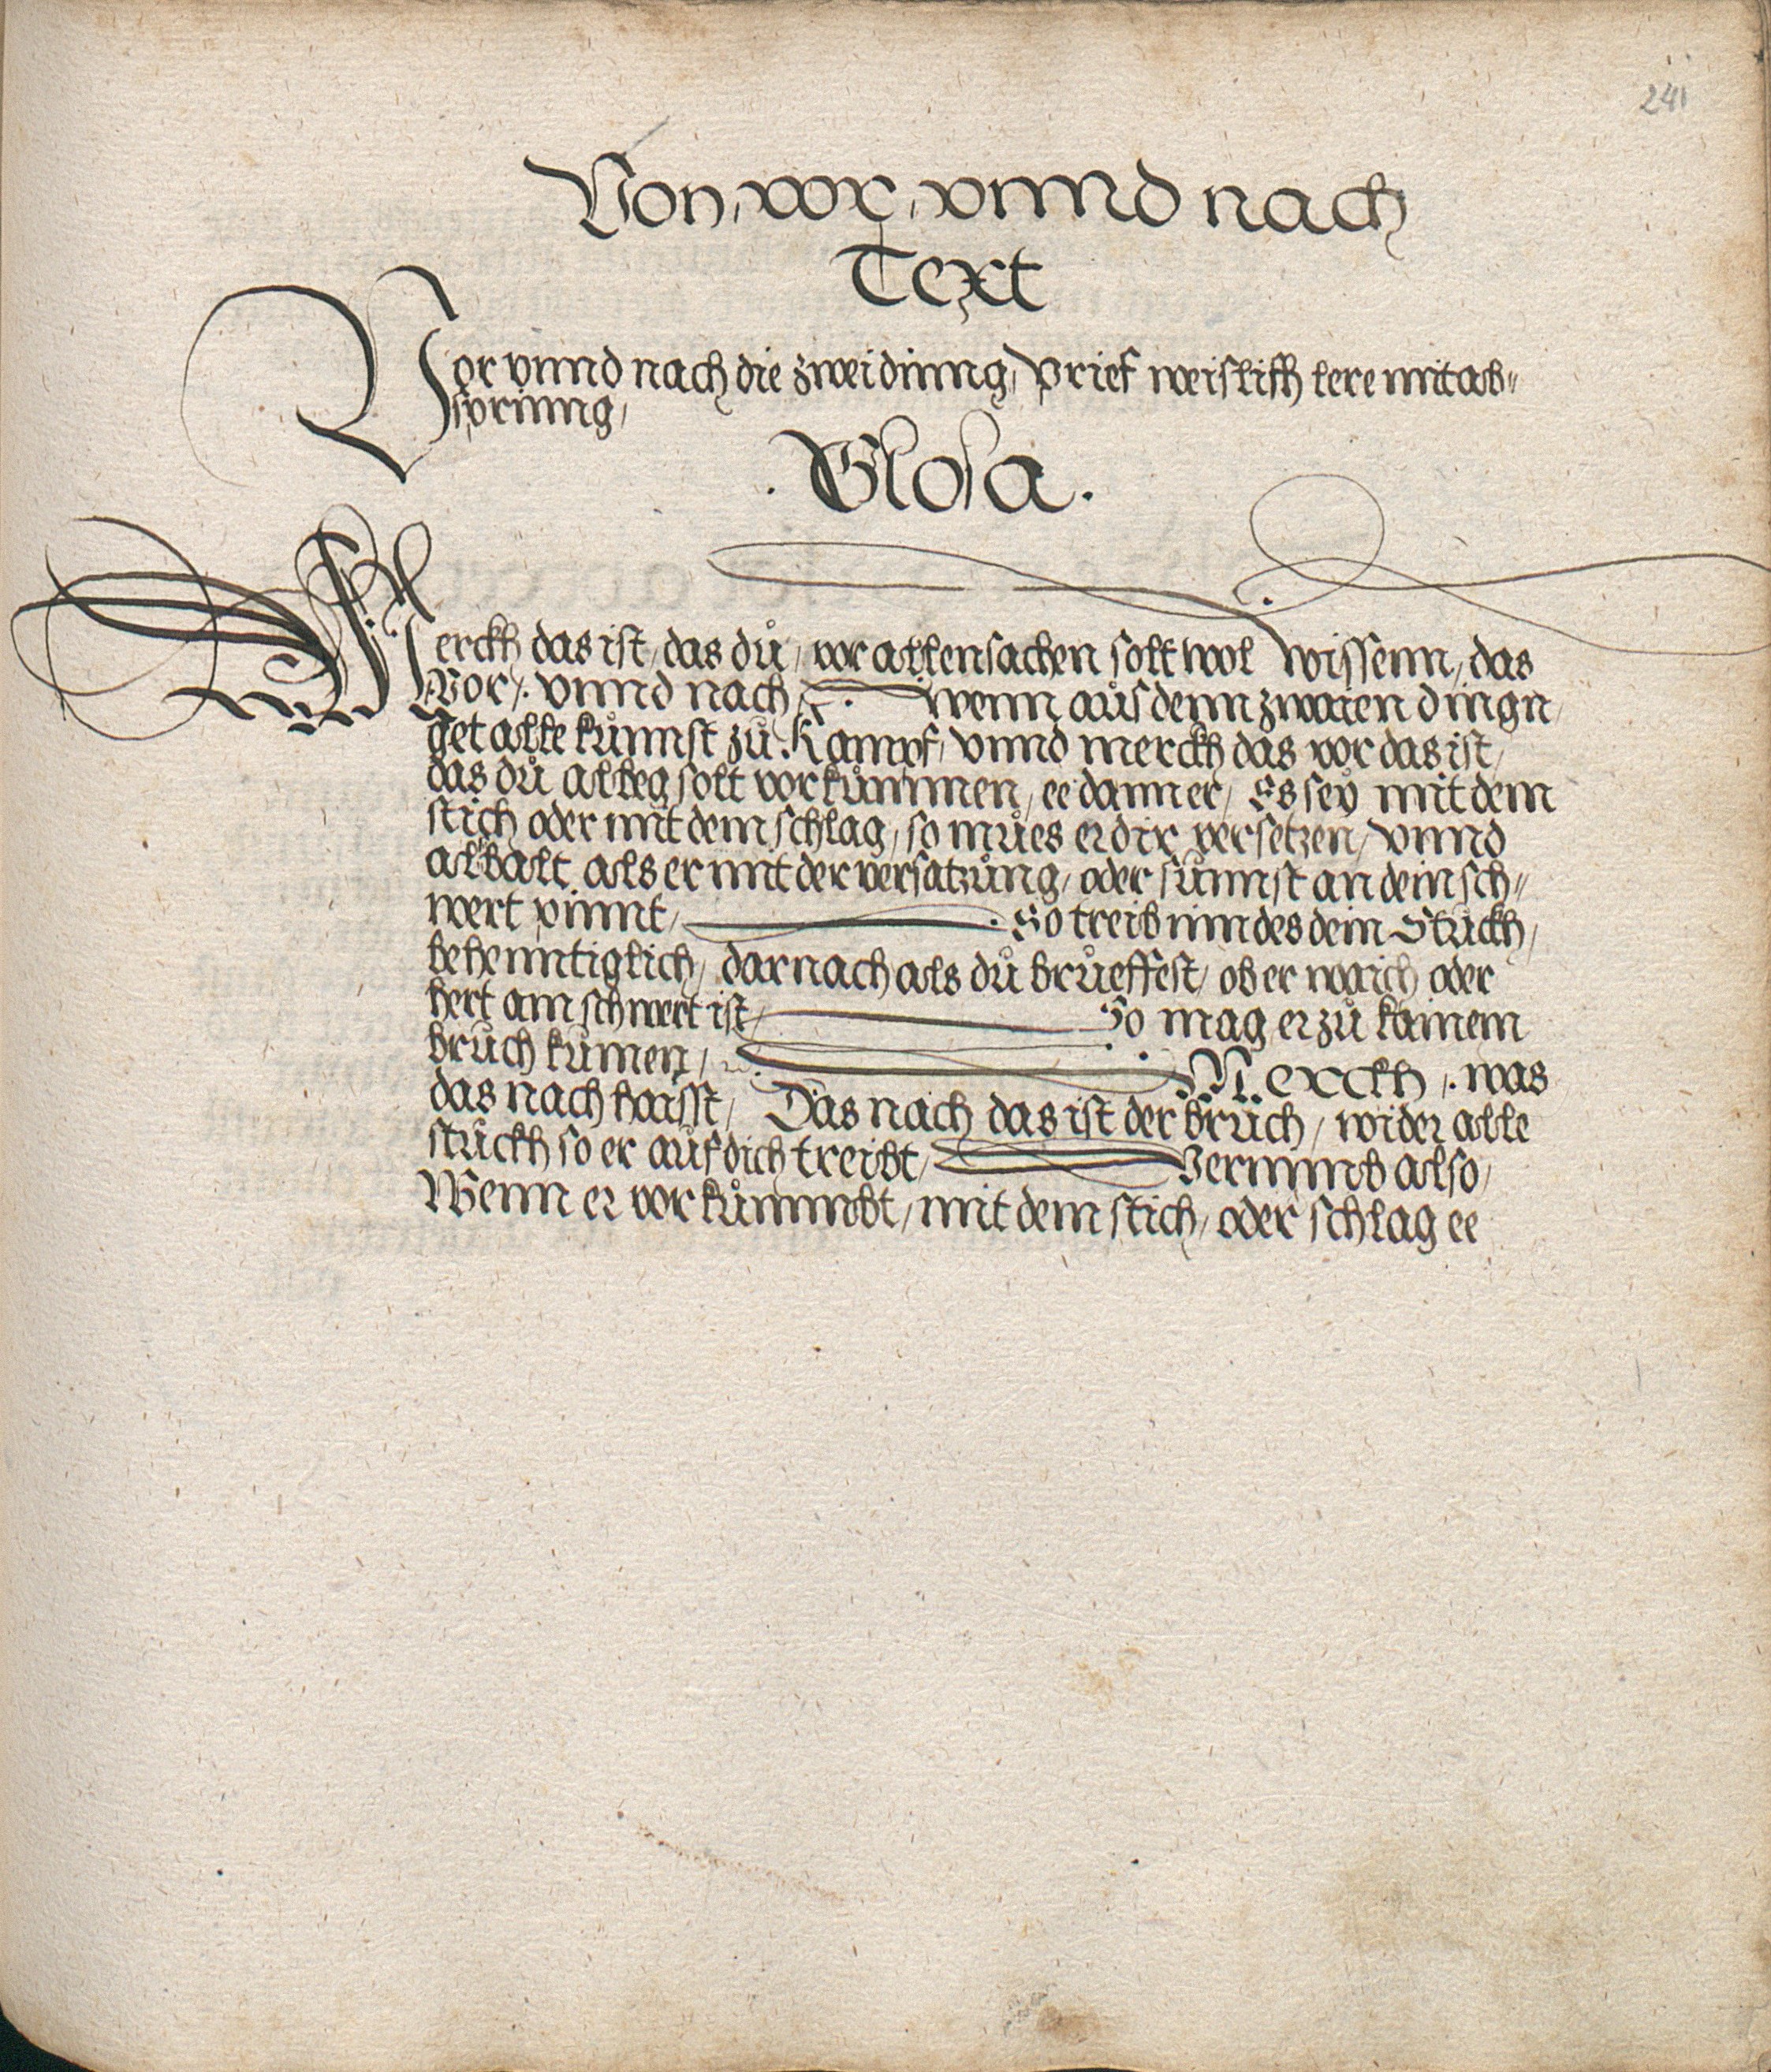 241
Von, vor, vnnd nach
Text
Vor vnnd nach die zwei dinng, prief weislikh lere mit ab„
sprinng,
. Glosa .
Merckh das ist, das dů, vor allen sachen solt wol wissenn, das
Vor,. vnnd nach,. wenn aůs denn zwaien dingn,
get alle kůnnst zů. Kampf, vnnd merckh das vor das ist,
das dů albeg solt vor kůmmen, ee dann er, Es seÿ mit dem
stich oder mit dem schlag, so můes er dir versetzen, vnnd
albalt als er mit der versatzůng, oder sůnnst an dein sch„
wert pinnt, So treib inn des dein Stückh,
behenntiglich, darnach als dů brůeffest, ob er waich oder
hert am schwert ist, So mag er zů kainem
brůch kůmen, Merckh,. was
das nach haisst, Das nach das ist der brůch, wider alle
stückh so er aůf dich treibt, Vernimb also,
Wenn er vor kůmmbt, mit dem stich, oder schlag ee